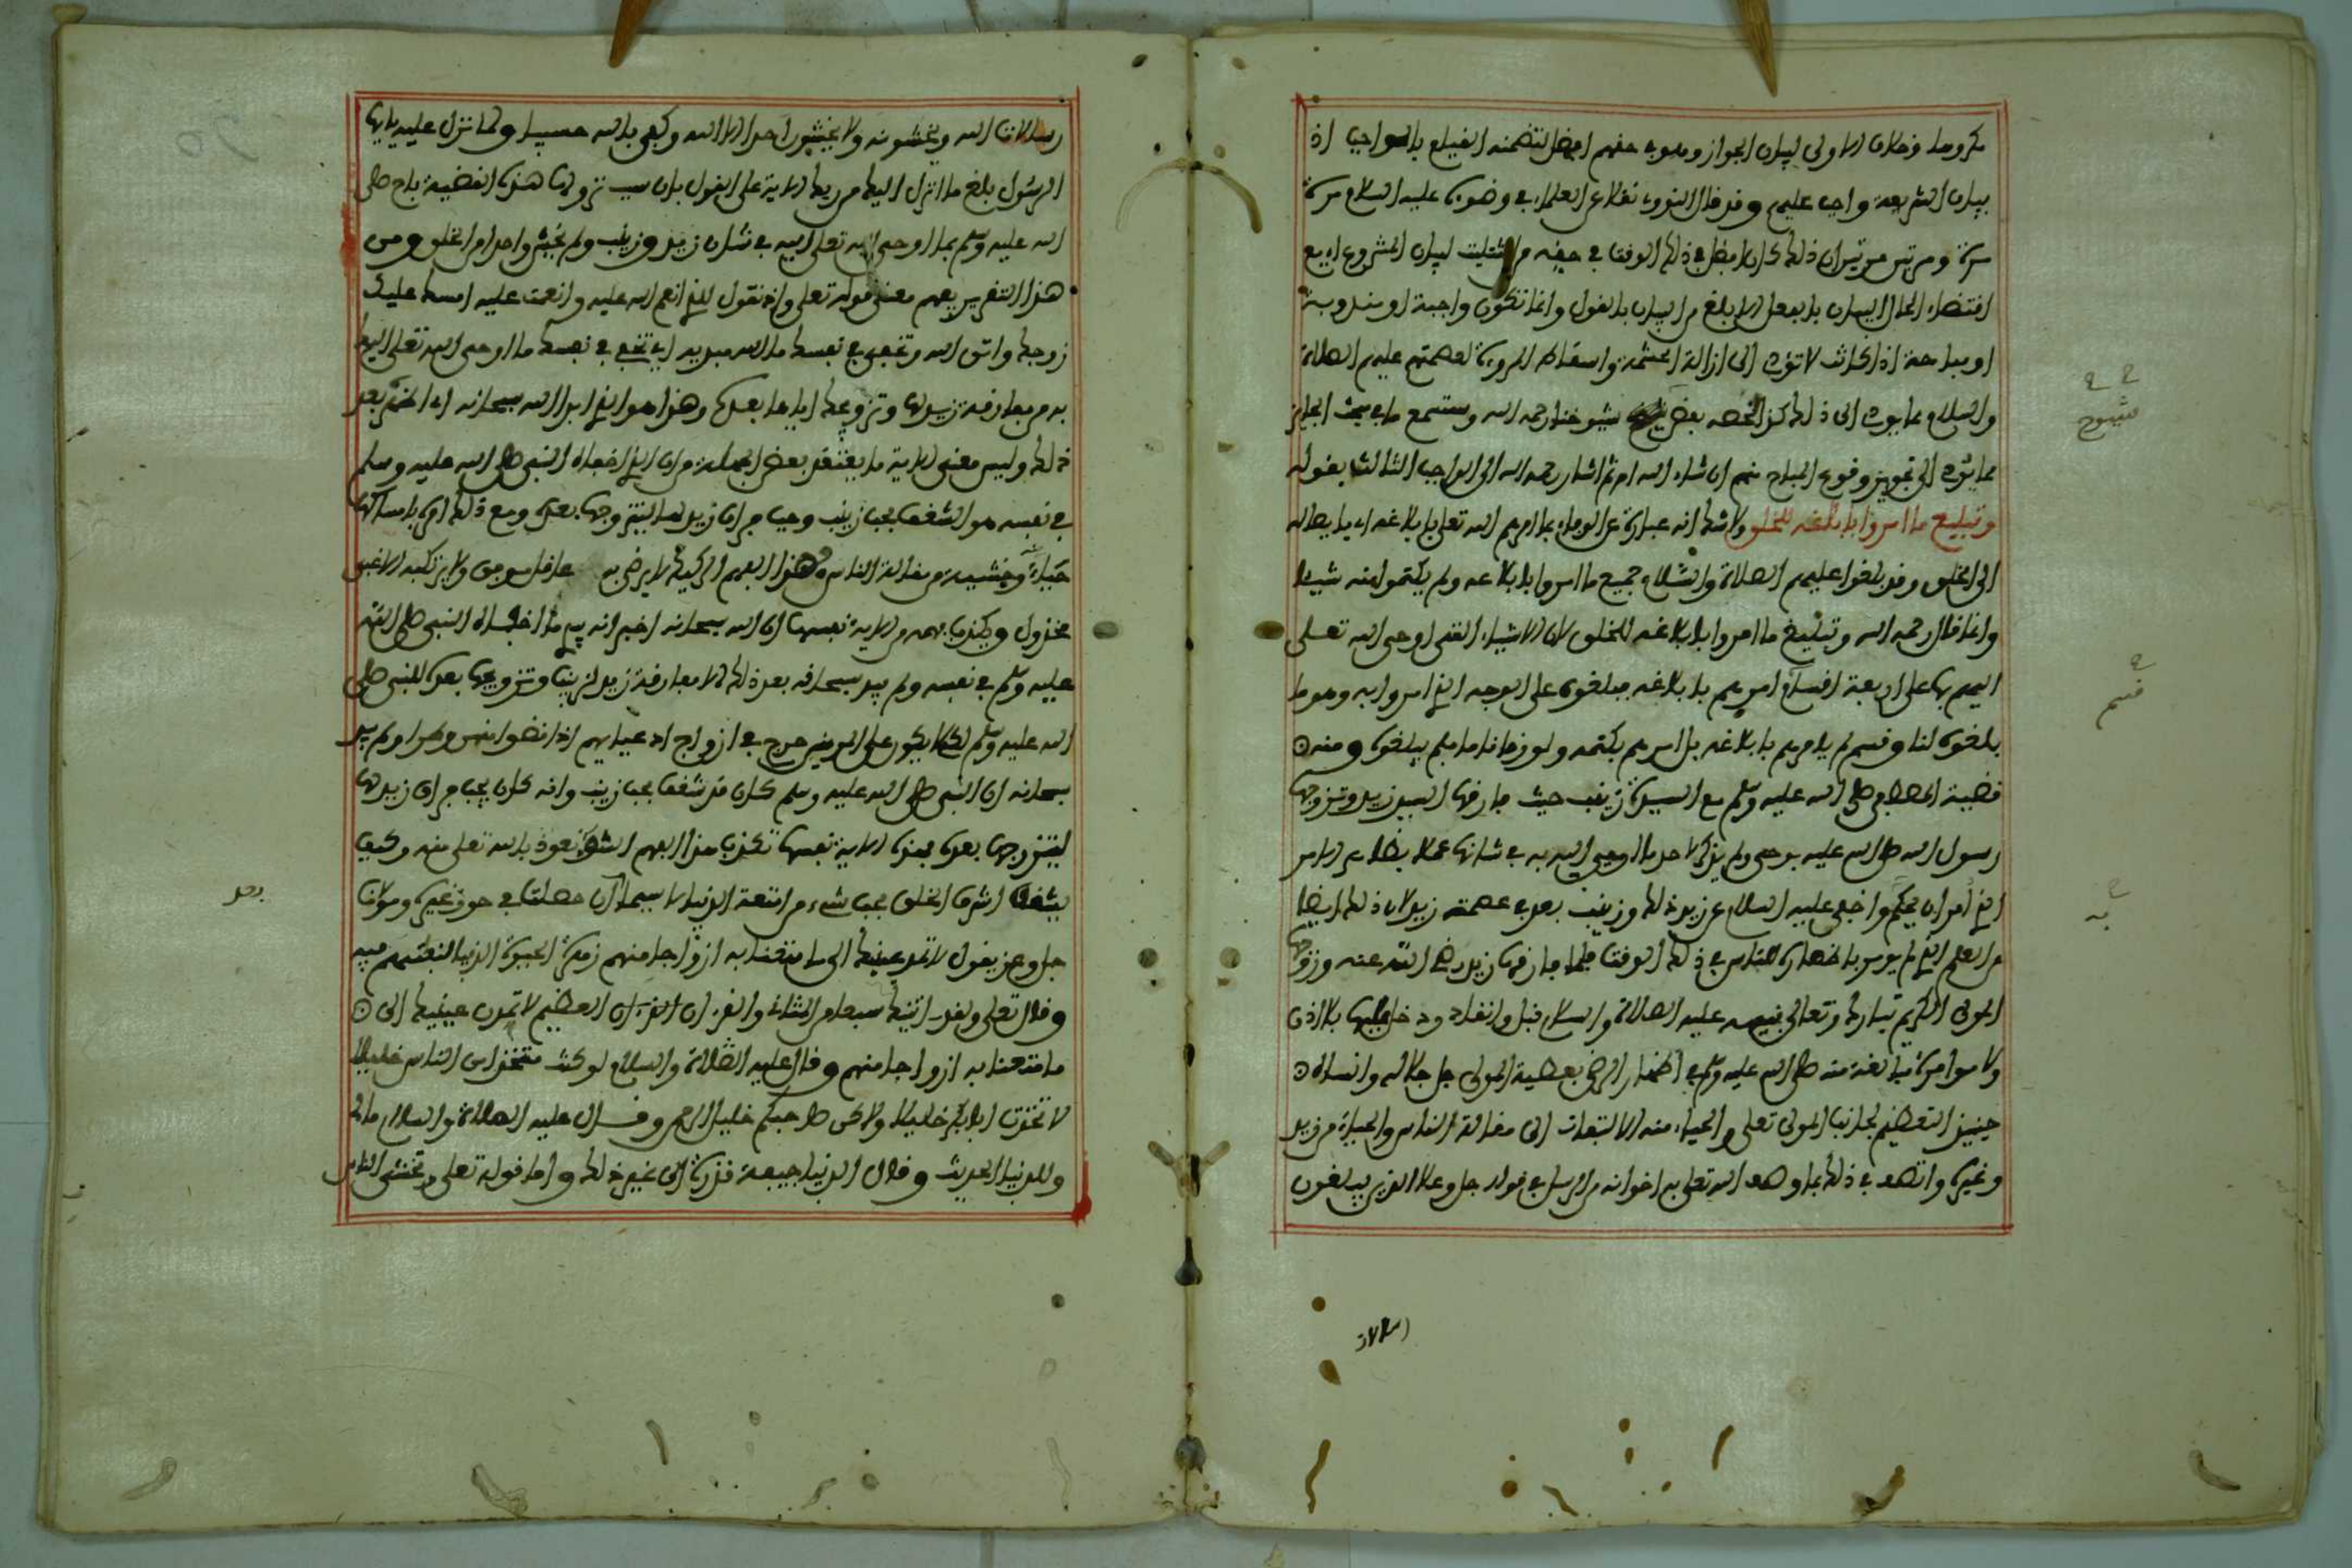 مكروها وخلاف الاولى لبيان الجواز وهو في حقهم افضل لتضمنه القيام بالواجب اذ
بيان الشريعة واجب عليهم وقد قال النووي نقلا عن العلماء في وضوئه عليه السلام مرة
مرة ومرتين مرتين ان ذلك كان افضل في ذلك الوقت في حقه من التثليث لبيان المشروع اي مع
اقتضاء الحال البيان بالفعل الابلغ من البيان بالقول وانما تكون واجبة او مندوبة
او مباحة اذا كانت لا تؤدي الى ازالة الحشمة واسقاط المروءة لعصمتهم عليهم الصلاة
والسلام مما يودي الى ذلك كذا لخصه بعض شيوخنا رحمه الله وستسمع ما في مبحث الجائز
مما يؤدي الى تجويز وقوع المباح منهم ان شاء الله ثم اشار رحمه الله الى الواجب الثالث بقوله
وتبليغ ما امروا بابلاغه للخلق ولا شك انه عبارة عن الوفاء بما امرهم الله تعلى بابلاغه اي بايصاله
الى الخلق وقد بلغوا عليهم الصلاة والسلام جميع ما امروا بابلاغه ولم يكتموا منه شيئا
وانما قال رحمه الله وتبليغ ما امروا بابلاغه للخلق لان الاشياء التي اوحى الله تعلى
اليهم بها على اربعة اقسام امرهم بابلاغه فبلغوه على الوجه الذي امروا به وهو ما
بلغوه لنا وقسم لم يامرهم بابلاغه بل امرهم بكتمه ولو زمانا ما فلم يبلغوه ومنه
قضية المصطفى صلى الله عليه وسلم مع السيدة زينب حيث فارقها السيد زيد وتزوجها
رسول الله صلى الله عليه بوحي ولم يذكر لاحد ما اوحى اليه به في شانها عملا بظاهر الامر
الذي امر ان يحكم به واخفى عليه السلام عن زيد ذلك وزينب بعد في عصمة زيد لان ذلك ايضا
من العلم الذي لم يومر باظهاره للناس في ذلك الوقت فلما فارقها زيد رضي الله عنه وزوجها
المولى الكريم تبارك وتعالى نبيه عليه الصلاة والسلام قبل وانقاد ودخل عليها بلا اذن
ولا موامرة مبالغة منه صلى الله عليه وسلم في اظهار الرضى بعطية المولى جل جلاله وانساه
حينئذ التعظيم لجانب المولى تعلى والحياء منه الالتفات الى مقالة الناس والحياء من زيد
وغيره واتصف في ذلك بما وصف الله تعلى به اخوانه من الرسل في قوله جل وعلا الذين يبلغون
رسالات
شيوخ
قسم
به
رسالات الله ويخشونه ولا يخشون احدا الا الله وكفى بالله حسيبا ولما نزل عليه يايها
الرسول بلغ ما انزل اليك من ربك الاية على القول بان سبب نزولها هذه القضية باح صلى
الله عليه وسلم بما اوحى الله تعلى اليه في شان زيد وزينب ولم يخش واحدا من الخلق ومن
هذا التقرير يفهم معنى قوله تعلى واذ تقول للذي انعم الله عليه وانعمت عليه امسك عليك
زوجك واتق الله وتخفي في نفسك ما الله مبديه اي تخفي في نفسك ما اوحى الله تعلى اليك
به من مفارقة زيد لها وتزوجك اياها بعده وهذا هو الذي ابدا الله سبحانه اي اظهره بعد
ذلك وليس معنى الاية ما يعتقد بعض الجهلة من ان الذي اخفاه النبي صلى الله عليه وسلم
في نفسه هو الشغف بحب زينب وحب فراق زيد لها ليتزوجها بعده ومع ذلك امره بامساكها
حياء وخشية من مقالة الناس وهذا الفهم الركيك لا يرضى به عاقل مومن ولا يرتكبه الا غبي
مخذول ويكذب فهمه الاية نفسها ان الله سبحانه اخبر انه يبدي ما اخفاه النبي صلى الله
عليه وسلم في نفسه ولم يبد سبحانه بعد ذلك الا مفارقة زيد لزينب وتزويجها بعده للنبي صلى
الله عليه وسلم لكيلا يكون على المومنين حرج في ازواج ادعيائهم اذا قضوا منهن وطرا ولم يبد
سبحانه ان النبي صلى الله عليه وسلم كان قد شغف بحب زينب وانه كان يحب فراق زيد لها
ليتزوجها بعده فهذه الاية نفسها تكذب هذا الفهم السوء نعوذ بالله تعلى منه وكيف
يشغف اشرف الخلق بحب شيء من امتعة الدنيا لا سيما ان حصلت في حوز غيره ومولانا
جل وعز يقول لا تمدن عينيك الى ما متعنا به ازواجا منهم زهرة الحيوة الدنيا لنفتنهم فيه
وقال تعلى ولقد اتينك سبعا من المثاني والقرءان العظيم لا تمدن عينيك الى
ما متعنا به ازواجا منهم وقال عليه الصلاة والسلام لو كنت متخذا من الناس خليلا
لاتخذت ابا بكر خليلا ولاكن صاحبكم خليل الرحمن وقال عليه الصلاة والسلام ما لي
وللدنيا الحديث وقال الدنيا جيفة قذرة الى غير ذلك واما قوله تعلى وتخشى الناس
بعد